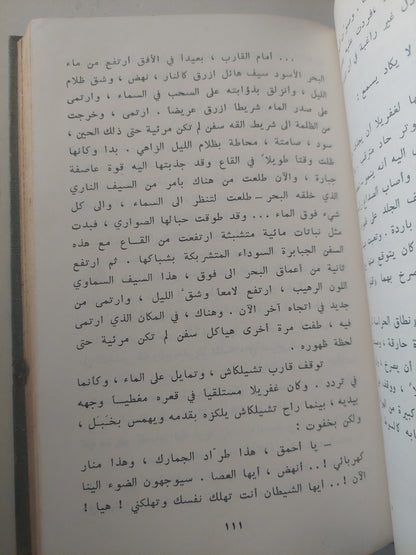 ... أمام القارب ، بعيداً في الأفق ارتفع من ماء
البحر الأسود سيف هائل ازرق كالنار ، نهض ، وشق ظلام
الليل ، وانزلق بذؤابته على السحب في السماء ، وارتمى
على صدر الماء شريطا ازرق عريضا . ارتمى ، وخرجت
من الظلمة الى شريط القه سفن لم تكن مرئية حتى ذلك الحين ،
سود ، صامتة ، محاطة بظلام الليل الزاهي . بدا وكانها
ظلت وقتا طويلاً في القاع وقد جذبتها اليه قوة عاصفة
جبارة ، والآن طلعت من هناك بامر من السيف الناري
الذي خلقه البحر – طلعت لتنظر الى السماء ، والى كل
شيء فوق الماء ... وقد طوقت حبالها الصواري ، فبدت
مثل نباتات مائية متشبثة ارتفعت من القاع مع هذه
السفن الجبابرة السوداء المتشربكة بشباكها . ثم ارتفع
ثانية من أعماق البحر الى فوق ، هذا السيف السماوي
اللون الرهيب ، ارتفع لامعا وشقّ الليل ، وارتمى من
جديد في اتجاه آخر الآن . وهناك ، في المكان الذي ارتمى
فيه ، طفت مرة أخرى هياكل سفن لم تكن مرئية حتى
لحظة ظهوره .
توقف قارب تشيلكاش ، وتمايل على الماء ، وكانما
في تردد . وكان غفريلا مستلقيا في قعره مغطيا وجهه
بيديه ، بينما راح تشيلكاش يلكزه بقدمه ويهمس بخَبَل ،
ولكن بخفوت :
– يا أحمق ، هذا طرّاد الجمارك ، وهذا منار
كهربائي ! .. أنهض ، أيها العصا . سيوجهون الضوء الينا
الآن ! .. أيها الشيطان أنت تهلك نفسك وتهلكني ! هيا !
١١١